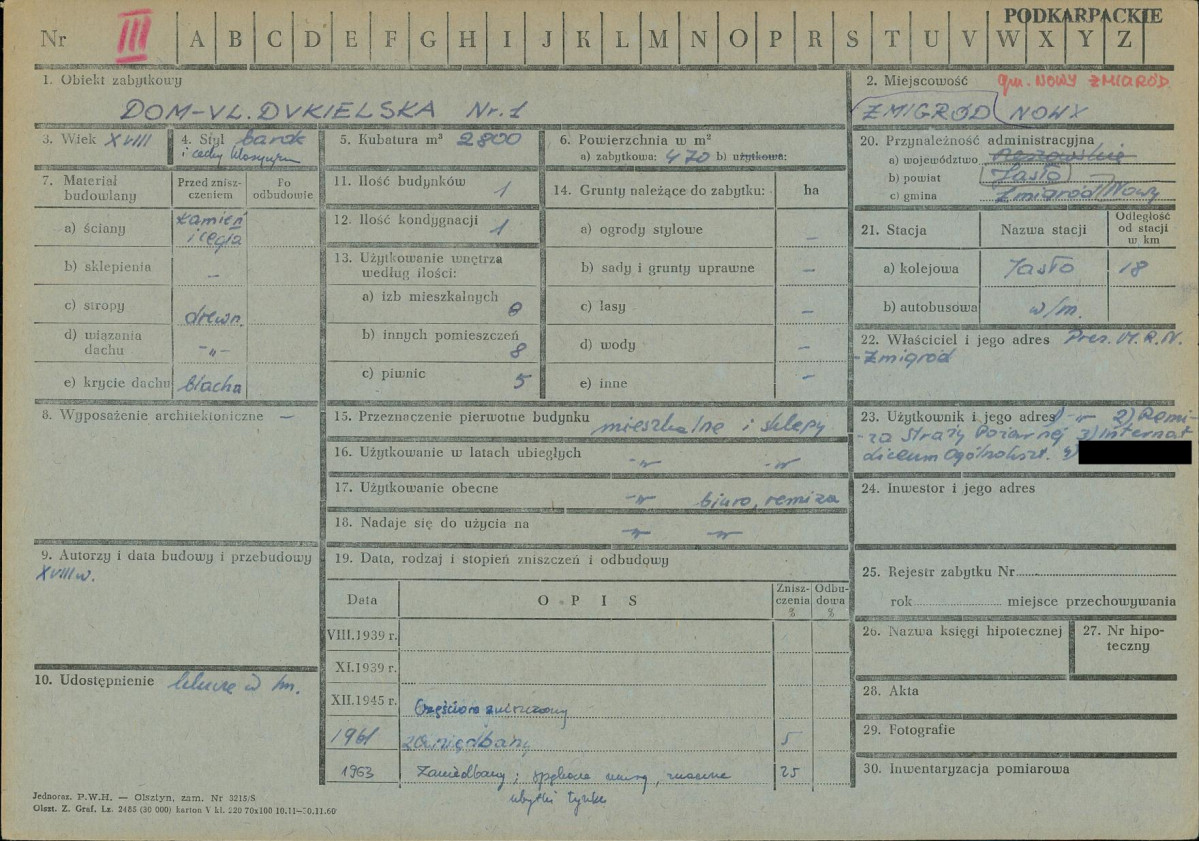 PODKARPACKIE
Nr III A B C D E F G H I J K L M N O P R S T U V W X Y Z
1. Obiekt zabytkowy
DOM - UL. DUKIELSKA Nr. 1
2. Miejscowość gm. NOWY ŻMIGRÓD
ŻMIGRÓD NOWY
3. Wiek XVIII
4. Styl barok
i cechy klasycyzm
5. Kubatura m³ 2800
6. Powierzchnia w m²
a) zabytkowa: 470 b) użytkowa:
7. Materiał budowlany
Przed zniszczeniem
Po odbudowie
a) ściany kamień i cegła
b) sklepienia –
c) stropy drewn.
d) wiązania dachu -„-
e) krycie dachu blacha
8. Wyposażenie architektoniczne –
9. Autorzy i data budowy i przebudowy
XVIII w.
10. Udostępnienie klucze w m.
11. Ilość budynków 1
12. Ilość kondygnacji 1
13. Użytkowanie wnętrza
według ilości:
a) izb mieszkalnych 8
b) innych pomieszczeń 8
c) piwnic 5
14. Grunty należące do zabytku: ha
a) ogrody stylowe –
b) sady i grunty uprawne –
c) lasy –
d) wody –
e) inne –
15. Przeznaczenie pierwotne budynku mieszkalne i sklepy
16. Użytkowanie w latach ubiegłych -„- -„-
17. Użytkowanie obecne -„- biuro, remiza
18. Nadaje się do użycia na -„- -„-
19. Data, rodzaj i stopień zniszczeń i odbudowy
Data OPIS Zniszczenia % Odbudowa %
VIII.1939 r.
XI.1939 r.
XII.1945 r. Częściowo zniszczony
1961 zaniedbany 5
1963 Zaniedbany; spękane mury, znaczne 25
ubytki tynku
20. Przynależność administracyjna
a) województwo Rzeszowskie
b) powiat Jasło
c) gmina Żmigród Nowy
21. Stacja Nazwa stacji Odległość od stacji w km
a) kolejowa Jasło 18
b) autobusowa w/m.
22. Właściciel i jego adres Prez. M.R.N.
- Żmigród
23. Użytkownik i jego adres 1) -„- 2) Remi-
-za Straży Pożarnej 3) Internat
Liceum Ogólnokszt. 4)
24. Inwestor i jego adres
25. Rejestr zabytku Nr
rok miejsce przechowywania
26. Nazwa księgi hipotecznej
27. Nr hipoteczny
28. Akta
29. Fotografie
30. Inwentaryzacja pomiarowa
Jednoraz. P.W.H. — Olsztyn, zam. Nr 3215/S
Olszt. Z. Graf. Lz. 2485 (30 000) karton V kl. 220 70x100 10.11—30.11.60